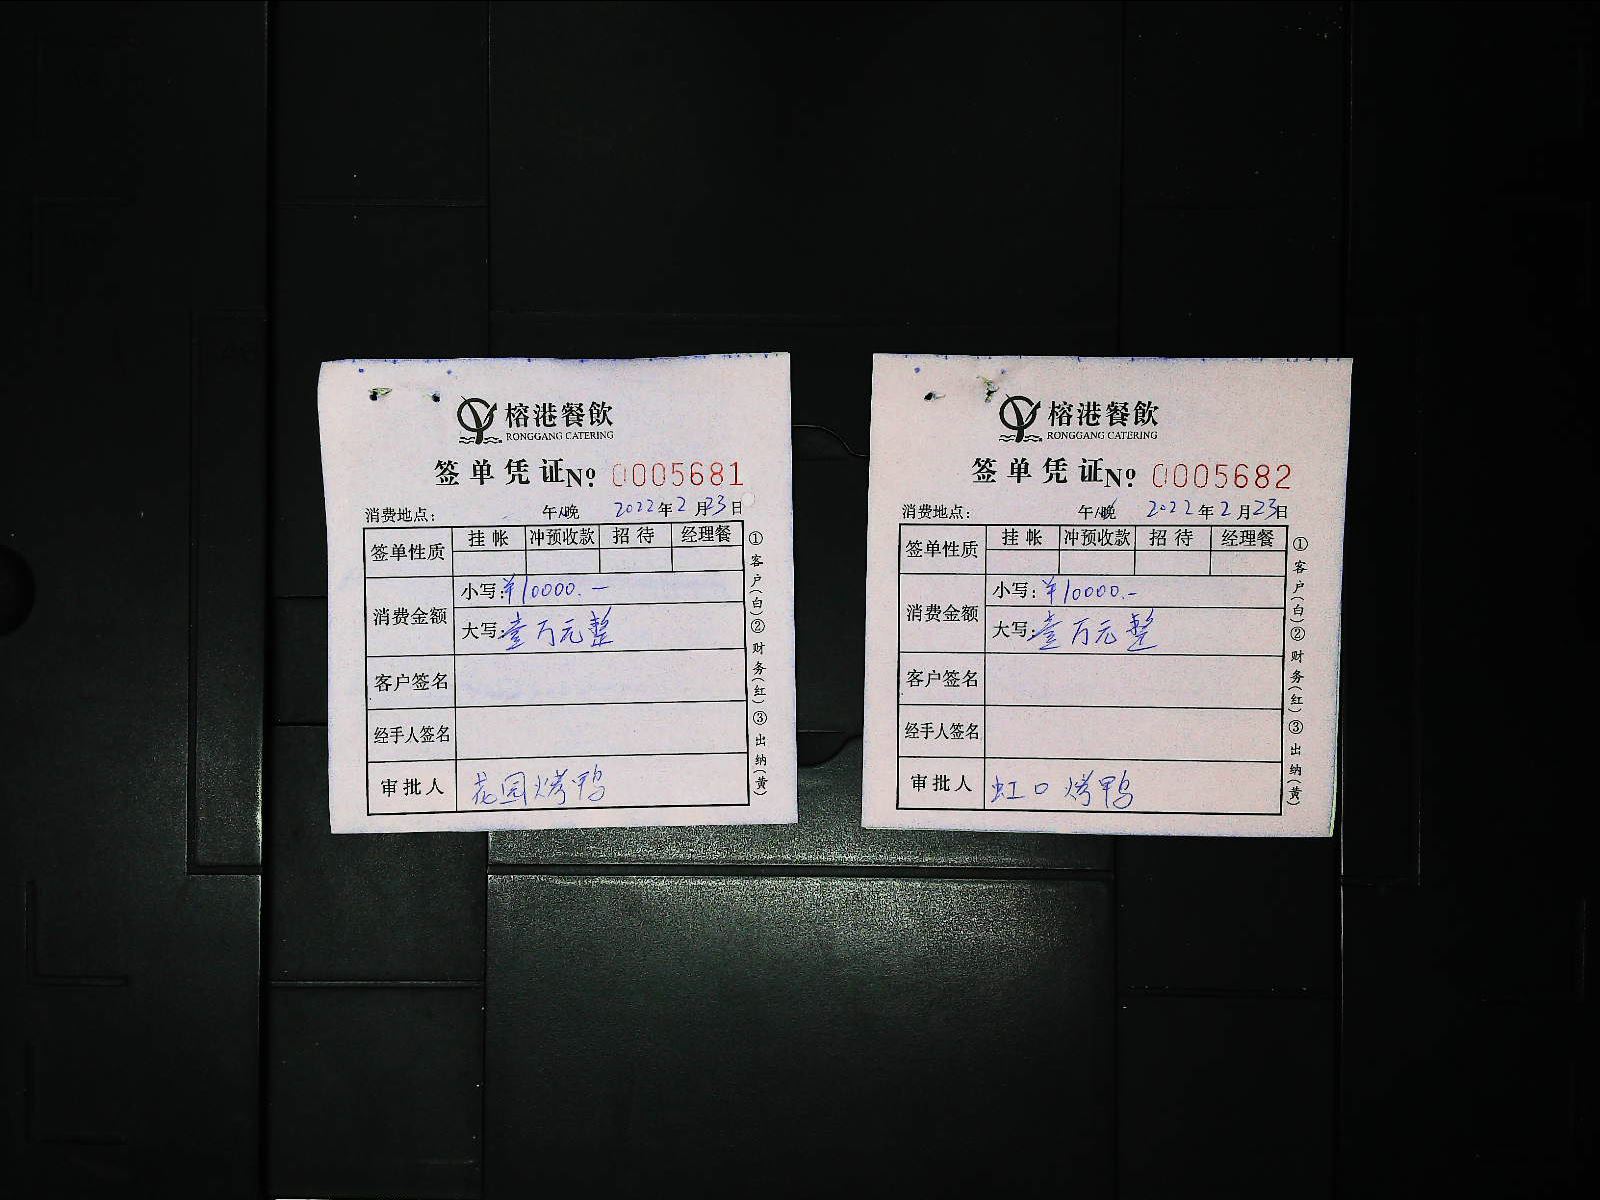 榕港餐飲
RONGGANG CATERING
签单凭证 No: 0005681
消费地点: 午/晚 2022年2月23日
签单性质 挂帐 冲预收款 招待 经理餐
消费金额 小写:¥10000.—
大写:壹万元整
客户签名
经手人签名
审批人 花园烤鸭
①客户(白)②财务(红)③出纳(黄)
榕港餐飲
RONGGANG CATERING
签单凭证 No: 0005682
消费地点: 午/晚 2022年2月23日
签单性质 挂帐 冲预收款 招待 经理餐
消费金额 小写:¥10000.-
大写:壹万元整
客户签名
经手人签名
审批人 虹口烤鸭
①客户(白)②财务(红)③出纳(黄)